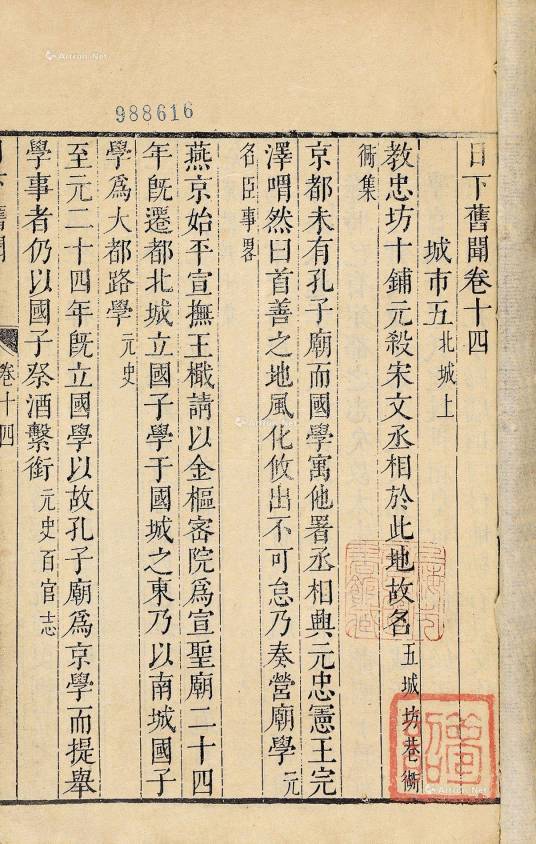 988616
日下舊聞卷十四
城市五 北城上
教忠坊十鋪元殺宋文丞相於此地故名 五城坊巷衚
衕集
京都未有孔子廟而國學寓他署丞相興元忠憲王完
澤喟然曰首善之地風化攸出不可怠乃奏營廟學 元
名臣事畧
燕京始平宣撫王檝請以金樞密院爲宣聖廟二十四
年旣遷都北城立國子學于國城之東乃以南城國子
學爲大都路學 元史
至元二十四年旣立國學以故孔子廟爲京學而提舉
學事者仍以國子祭酒繫銜 元史百官志
卷十四
Artron.Net